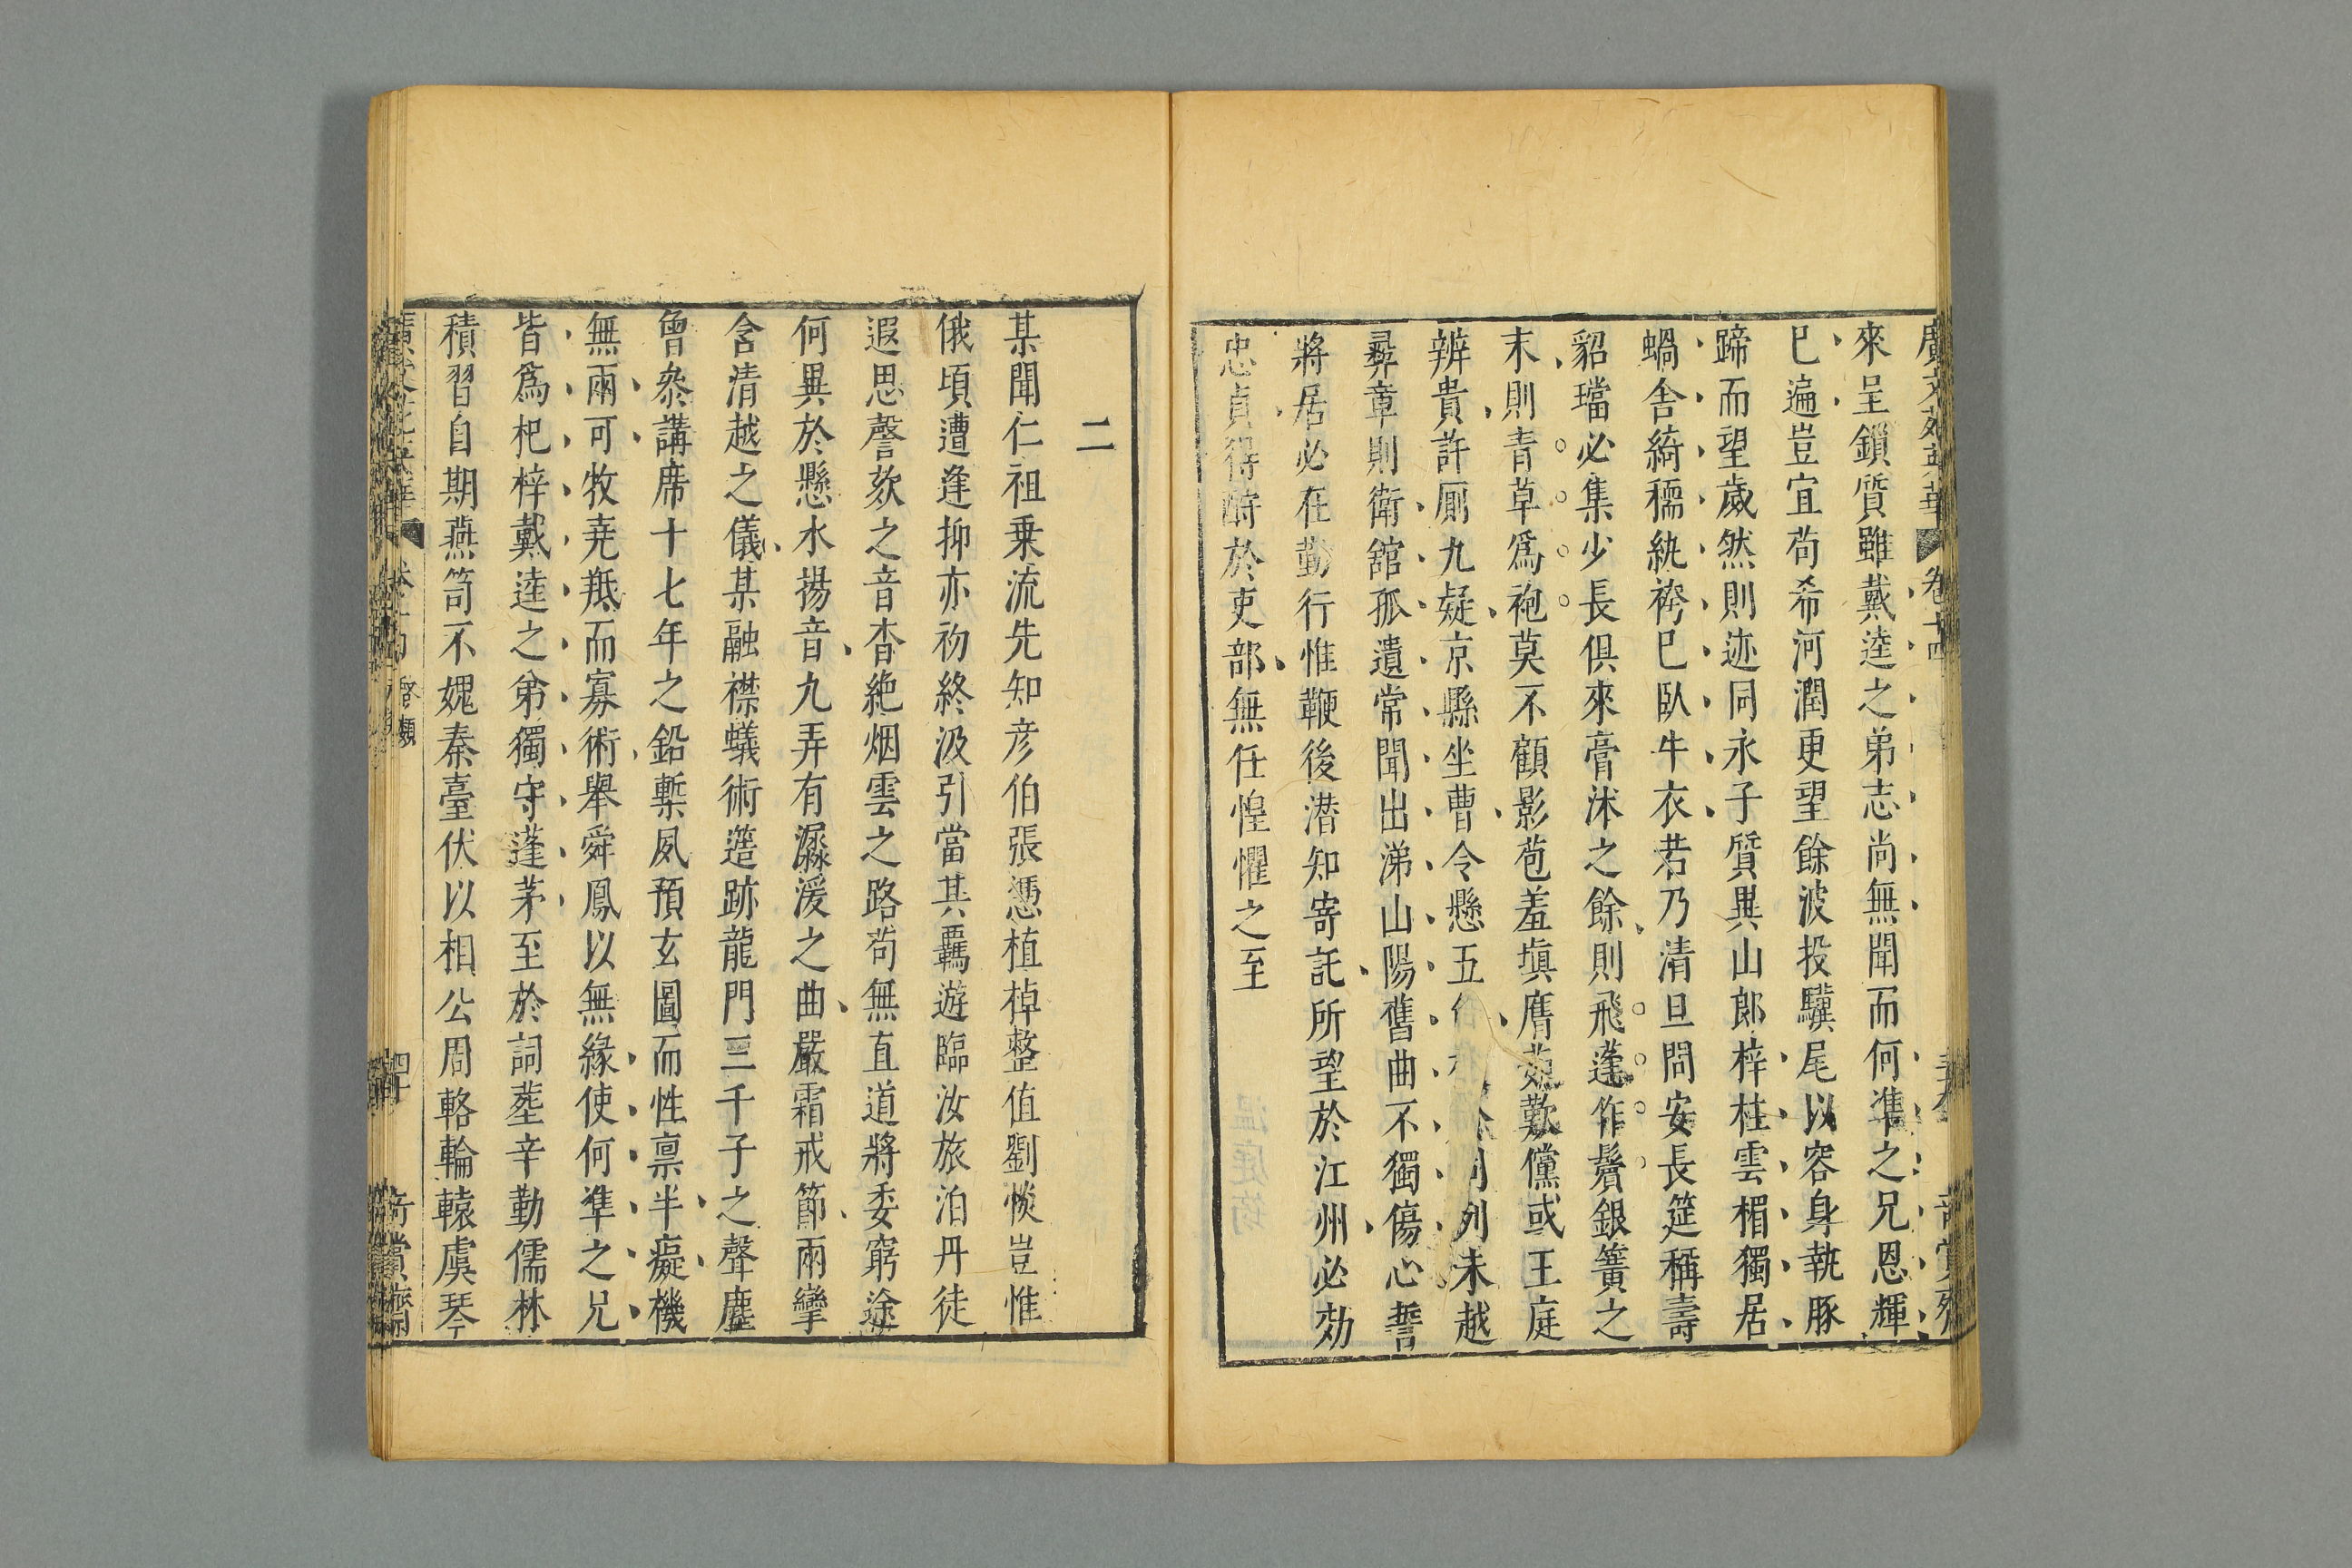 來呈鎖質雖戴逵之弟志尚無聞而何準之兄恩輝
已遍豈宜茍希河潤更望餘波投驥尾以容身執豚
蹄而望歲然則迹同永子質異山郎梓柱雲楣獨居
蝸舍綺襦紈袴已臥牛衣若乃清旦問安長筵稱壽
貂璫必集少長俱來膏沐之餘則飛蓬作鬢銀簧之
末則青草爲袍莫不顧影苞羞塡膺茹歎儻或王庭
辨貴許厠九疑京縣坐曹令懸五列未越
彞章則衛舘孤遺常聞出涕山陽舊曲不獨傷心誓
將居必在勤行惟鞭後潜知寄託所望於江州必効
忠貞得酧於吏部無任惶懼之至
二
某聞仁祖乗流先知彦伯張憑植棹整值劉惔豈惟
俄頃遭逢抑亦初終汲引當其羈遊臨汝旅泊丹徒
遐思謦欬之音杳絶烟雲之路茍無直道將委窮途
何異於懸水揚音九弄有潺湲之曲嚴霜戒節兩欒
含清越之儀某融襟蟻術簉跡龍門三千子之聲塵
曾叅講席十七年之鉛槧夙預玄圖而性禀半癡機
無兩可牧堯羝而寡術舉舜鳳以無緣使何準之兄
皆爲杞梓戴逵之弟獨守蓬茅至於詞塟辛勤儒林
積習自期燕笥不媿秦臺伏以相公周輅輪轅虞琴
卷十四
啓類
四十